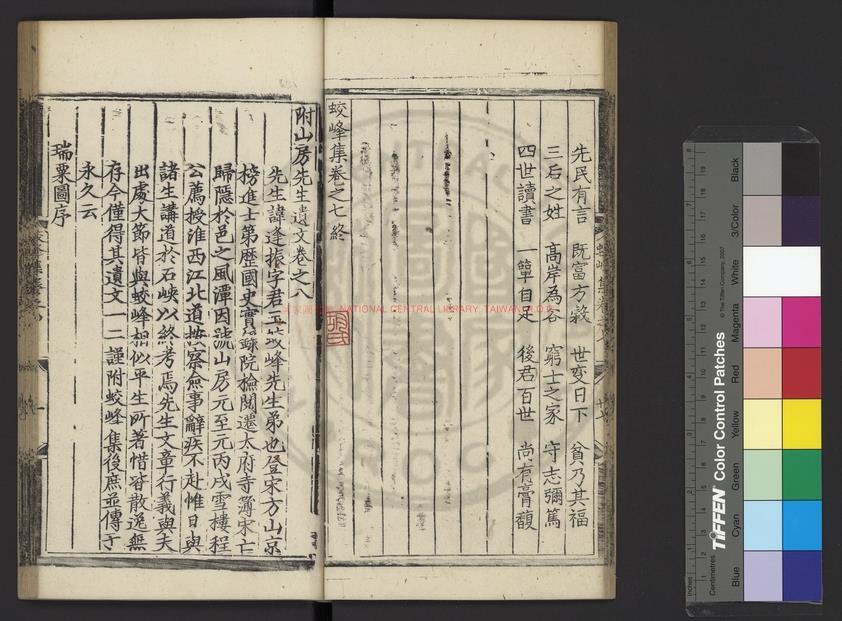 先民有言 既富方穀 世变日下 貧乃其福
三后之姓 高岸為谷 窮士之家 守志彌篤
四世讀書 一簞自足 後君百世 尚有膏馥
蛟峰集卷之七終
附山房先生遺文卷之八
先生諱逢振字君玉蛟峰先生弟也登宋方山京
榜進士第歷國史實錄院檢閱遷太府寺簿宋亡
歸隱於邑之風潭因號山房元至元丙戌雪樓程
公薦授淮西江北道按察僉事辭疾不赴惟日與
諸生講道於石峽以終考焉先生文章行義與夫
出處大節皆與蛟峰相似平生所著惜皆散逸無
存今僅得其遺文一二謹附蛟峰集後庶並傳于
永久云
瑞粟圖序
NATIONAL CENTRAL LIBRARY, TAIWAN
TIFFEN Color Control Patches
© The Tiffen Company, 2007
Inches
Centimetres
Blue
Cyan
Green
Yellow
Red
Magenta
White
3/Color
Black